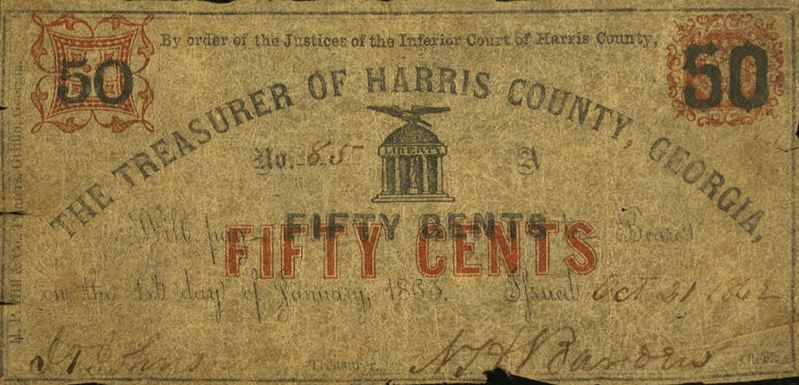 By order of the Justices of the Inferior Court of Harris County,
50
50
THE TREASURER OF HARRIS COUNTY, GEORGIA,
No. 85
A
LIBERTY
Will pay FIFTY CENTS to Bearer
FIFTY CENTS
on the 1st day of January, 186 . Issued Oct 21 1862
Treasurer.
Clerk.